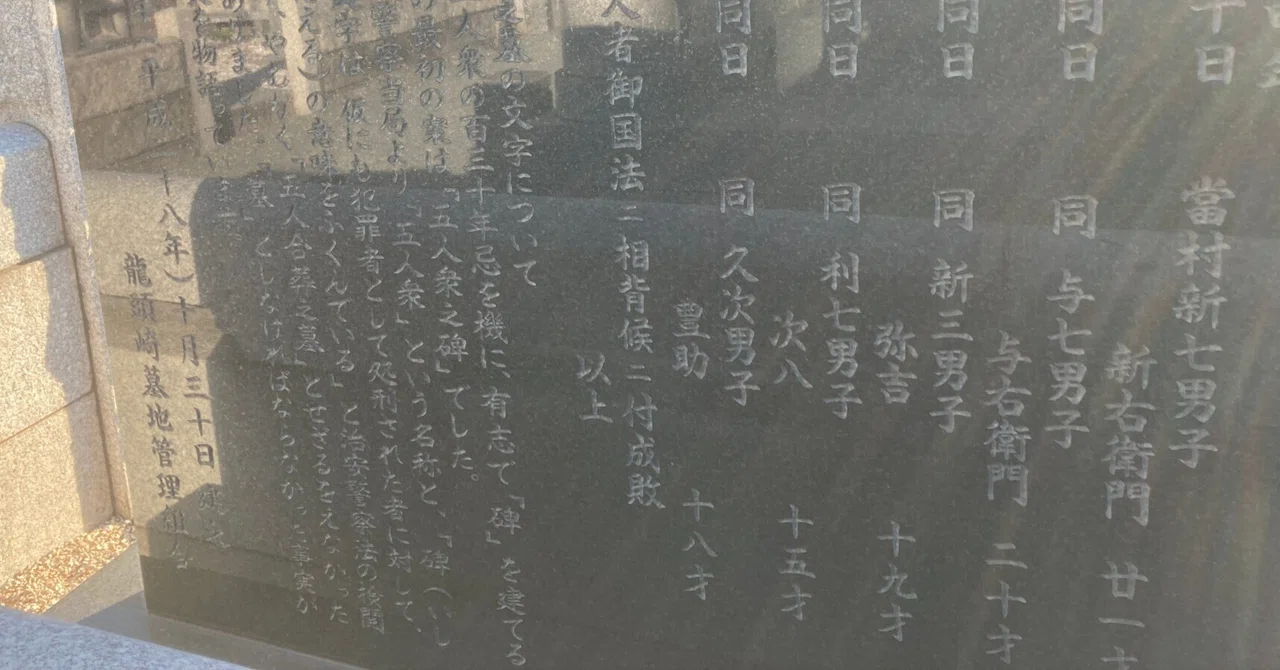 十日　當村新七男子
新右衛門　廿一才
同日　同　与七男子
与右衛門　二十才
同日　同　新三男子
弥吉　十九才
同日　同　利七男子
次八　十五才
同日　同　久次男子
豊助　十八才
人者御国法ニ相背候ニ付成敗
以上
墓の文字について
人衆の百三十年忌を機に、有志で「碑」を建てる
最初の案は「五人衆之碑」でした。
警察当局より「五人衆」という名称と、「碑（いし
字は、仮にも犯罪者として処刑された者に対して、
の意味をふくんでいる」と治安警察法の
やむなく「五人合葬之墓」とせざるをえなかった
「墓」としなければならなかった事実が
を物語っています
平成　十八年）十月三十日
龍頭崎墓地管理組合